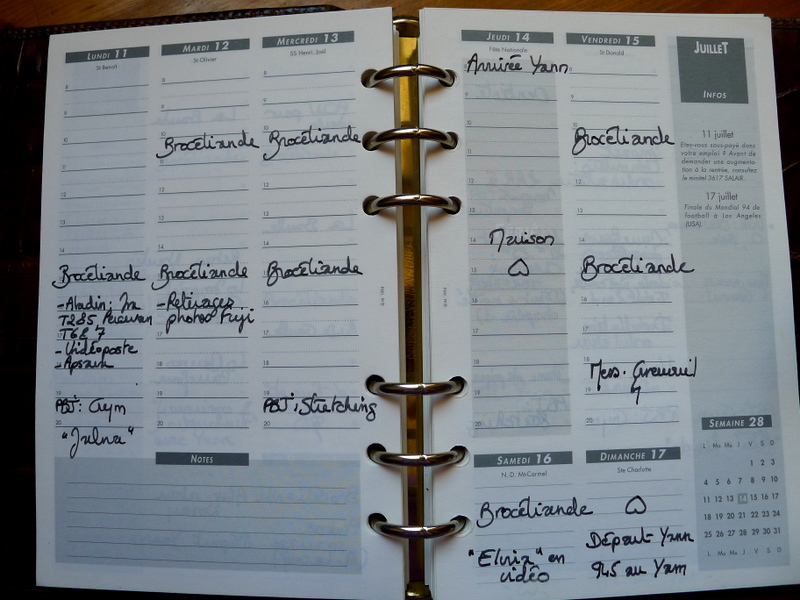 LUNDI 11
St Benoît
8
9
10
11
12
13
14
Brocéliande
-Aladin:
T285
T687
-Vidéoposte
19
PBJ: Gym
20
"Julna"
MARDI 12
St Olivier
Brocéliande
Brocéliande
-Retirages
photos Fuji
NOTES
MERCREDI 13
SS. Henri, Joël
Brocéliande
Brocéliande
PBJ: Stretching
JEUDI 14
Fête Nationale
Arrivée Yann
Maison
VENDREDI 15
St Donald
Brocéliande
Brocéliande
SAMEDI 16
N.-D. Mt-Carmel
Brocéliande
"Elvira" en
vidéo
DIMANCHE 17
Ste Charlotte
Départ Yann
945 au Yam
JUILLET
INFOS
11 juillet
Etes-vous sous-payé dans
votre emploi ? Avant de
demander une augmenta-
tion à la rentrée, consultez
le minitel 3617 SALAIR.
17 juillet
Finale du Mondial 94 de
football à Los Angeles
(USA).
SEMAINE 28
L Ma Me J V S D
1 2 3
4 5 6 7 8 9 10
11 12 13 14 15 16 17
18 19 20 21 22 23 24
25 26 27 28 29 30 31
L Ma Me J V S D